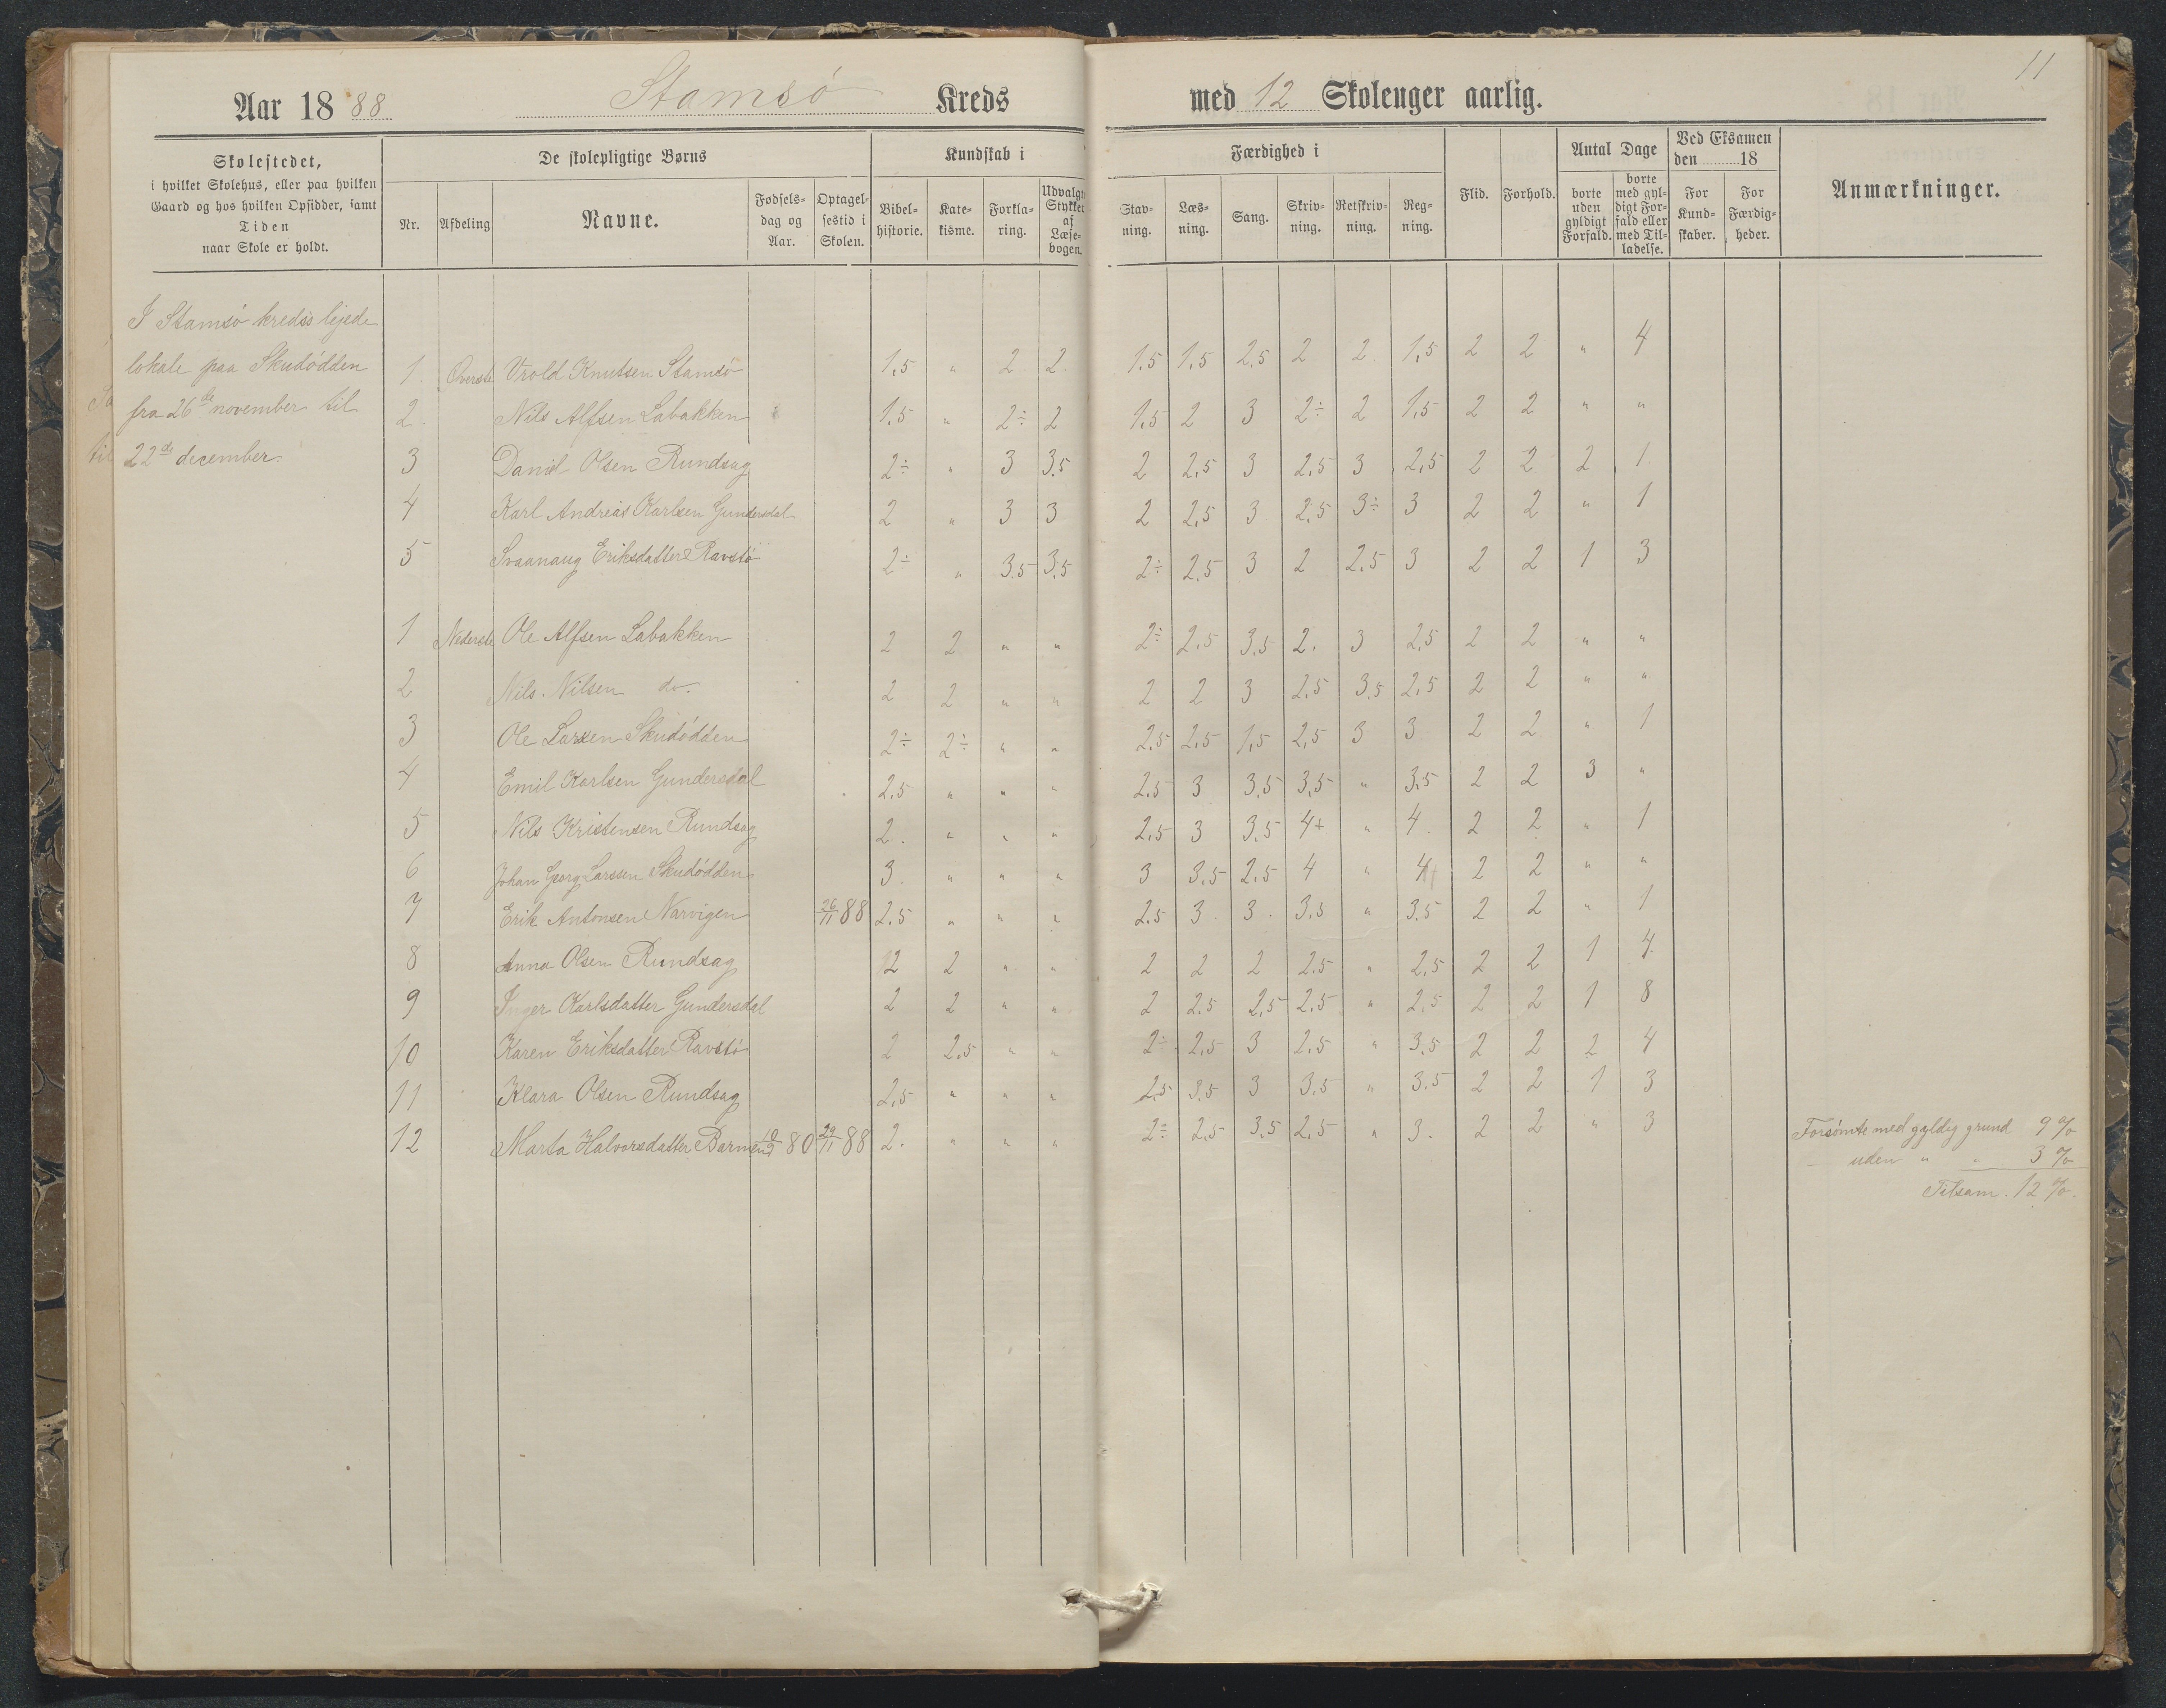 11
Aar 18 88 Stamsø Kreds med 12 Skoleuger aarlig.
Skolestedet,
i hvilket Skolehus, eller paa hvilken
Gaard og hos hvilken Opsidder, samt
Tiden
naar Skole er holdt.
De skolepligtige Børns
Nr. Afdeling Navne. Fødsels-dag og Aar. Optagel-sestid i Skolen.
Kundskab i
Bibel-historie. Kate-kisme. Forkla-ring. Udvalgte Stykker af Læse-bogen.
Færdighed i
Stav-ning. Læs-ning. Sang. Skriv-ning. Retskriv-ning. Reg-ning.
Flid. Forhold.
Antal Dage
borte uden gyldigt Forfald. borte med gyl-digt For-fald eller med Til-ladelse.
Ved Eksamen
den 18
For Kund-skaber. For Færdig-heder.
Anmærkninger.
I Stamsø kreds's lejede
lokale paa Skudødden
fra 26de november til
22de december.
1. Øverste Vrold Knutsen Stamsø 1,5 " 2 2. 1.5 1,5 2,5 2 2. 1,5 2 2 " 4
2. Nils Alfsen Labakken 1.5 " 2÷ 2 1,5 2 3 2÷ 2 1,5 2 2 " "
3 Daniel Olsen Rundsag 2÷ " 3 3.5 2 2,5 3 2,5 3 2,5 2 2 2 1
4 Karl Andreas Karlsen Gundersdal 2 " 3 3 2 2,5 3 2,5 3÷ 3 2 2 " 1
5 Svaanaug Eriksdatter Ravstø 2÷ " 3.5 3,5 2÷ 2.5 3 2 2.5 3 2 2 1 3
1 Nederste Ole Alfsen Labakken 2 2 " " 2÷ 2.5 3,5 2. 3 2,5 2 2 " "
2 Nils Nilsen do. 2 2 " " 2 2 3 2,5 3,5 2,5 2 2 " "
3 Ole Larsen Skudødden 2÷ 2÷ " " 2,5 2,5 1,5 2,5 3 3 2 2 " 1
4 Emil Karlsen Gundersdal 2.5 " " " 2.5 3 3,5 3,5 " 3,5 2 2 3 "
5 Nils Kristensen Rundsag 2. " " " 2,5 3 3.5 4+ " 4. 2 2 " 1
6 Johan Georg Larssen Skudødden 3. " " " 3 3,5 2.5 4 " 4+ 2 2 " "
7 Erik Antonsen Narvigen 26/11 88 2.5 " " " 2.5 3. 3. 3,5 " 3.5 2 2 " 1
8 Anna Olsen Rundsag 2 2 " " 2 2 2 2.5 " 2,5 2 2 1 4
9 Inger Karlsdatter Gundersdal 2 2 " " 2 2.5 2,5 2.5 " 2,5 2 2 1 8
10 Karen Eriksdatter Ravstø 2 2,5 " " 2÷ 2,5 3 2.5 " 3,5 2 2 2 4
11 Klara Olsen Rundsag 2,5 " " " 2,5 3.5 3 3,5 " 3.5 2 2 1 3
12 Marta Halvorsdatter Barmen 80 29/11 88 2. " " " 2÷ 2.5 3,5 2,5 " 3. 2 2 " 3
Forsømte med gyldig grund 9 %
uden " " 3 %
Tilsam. 12 %.